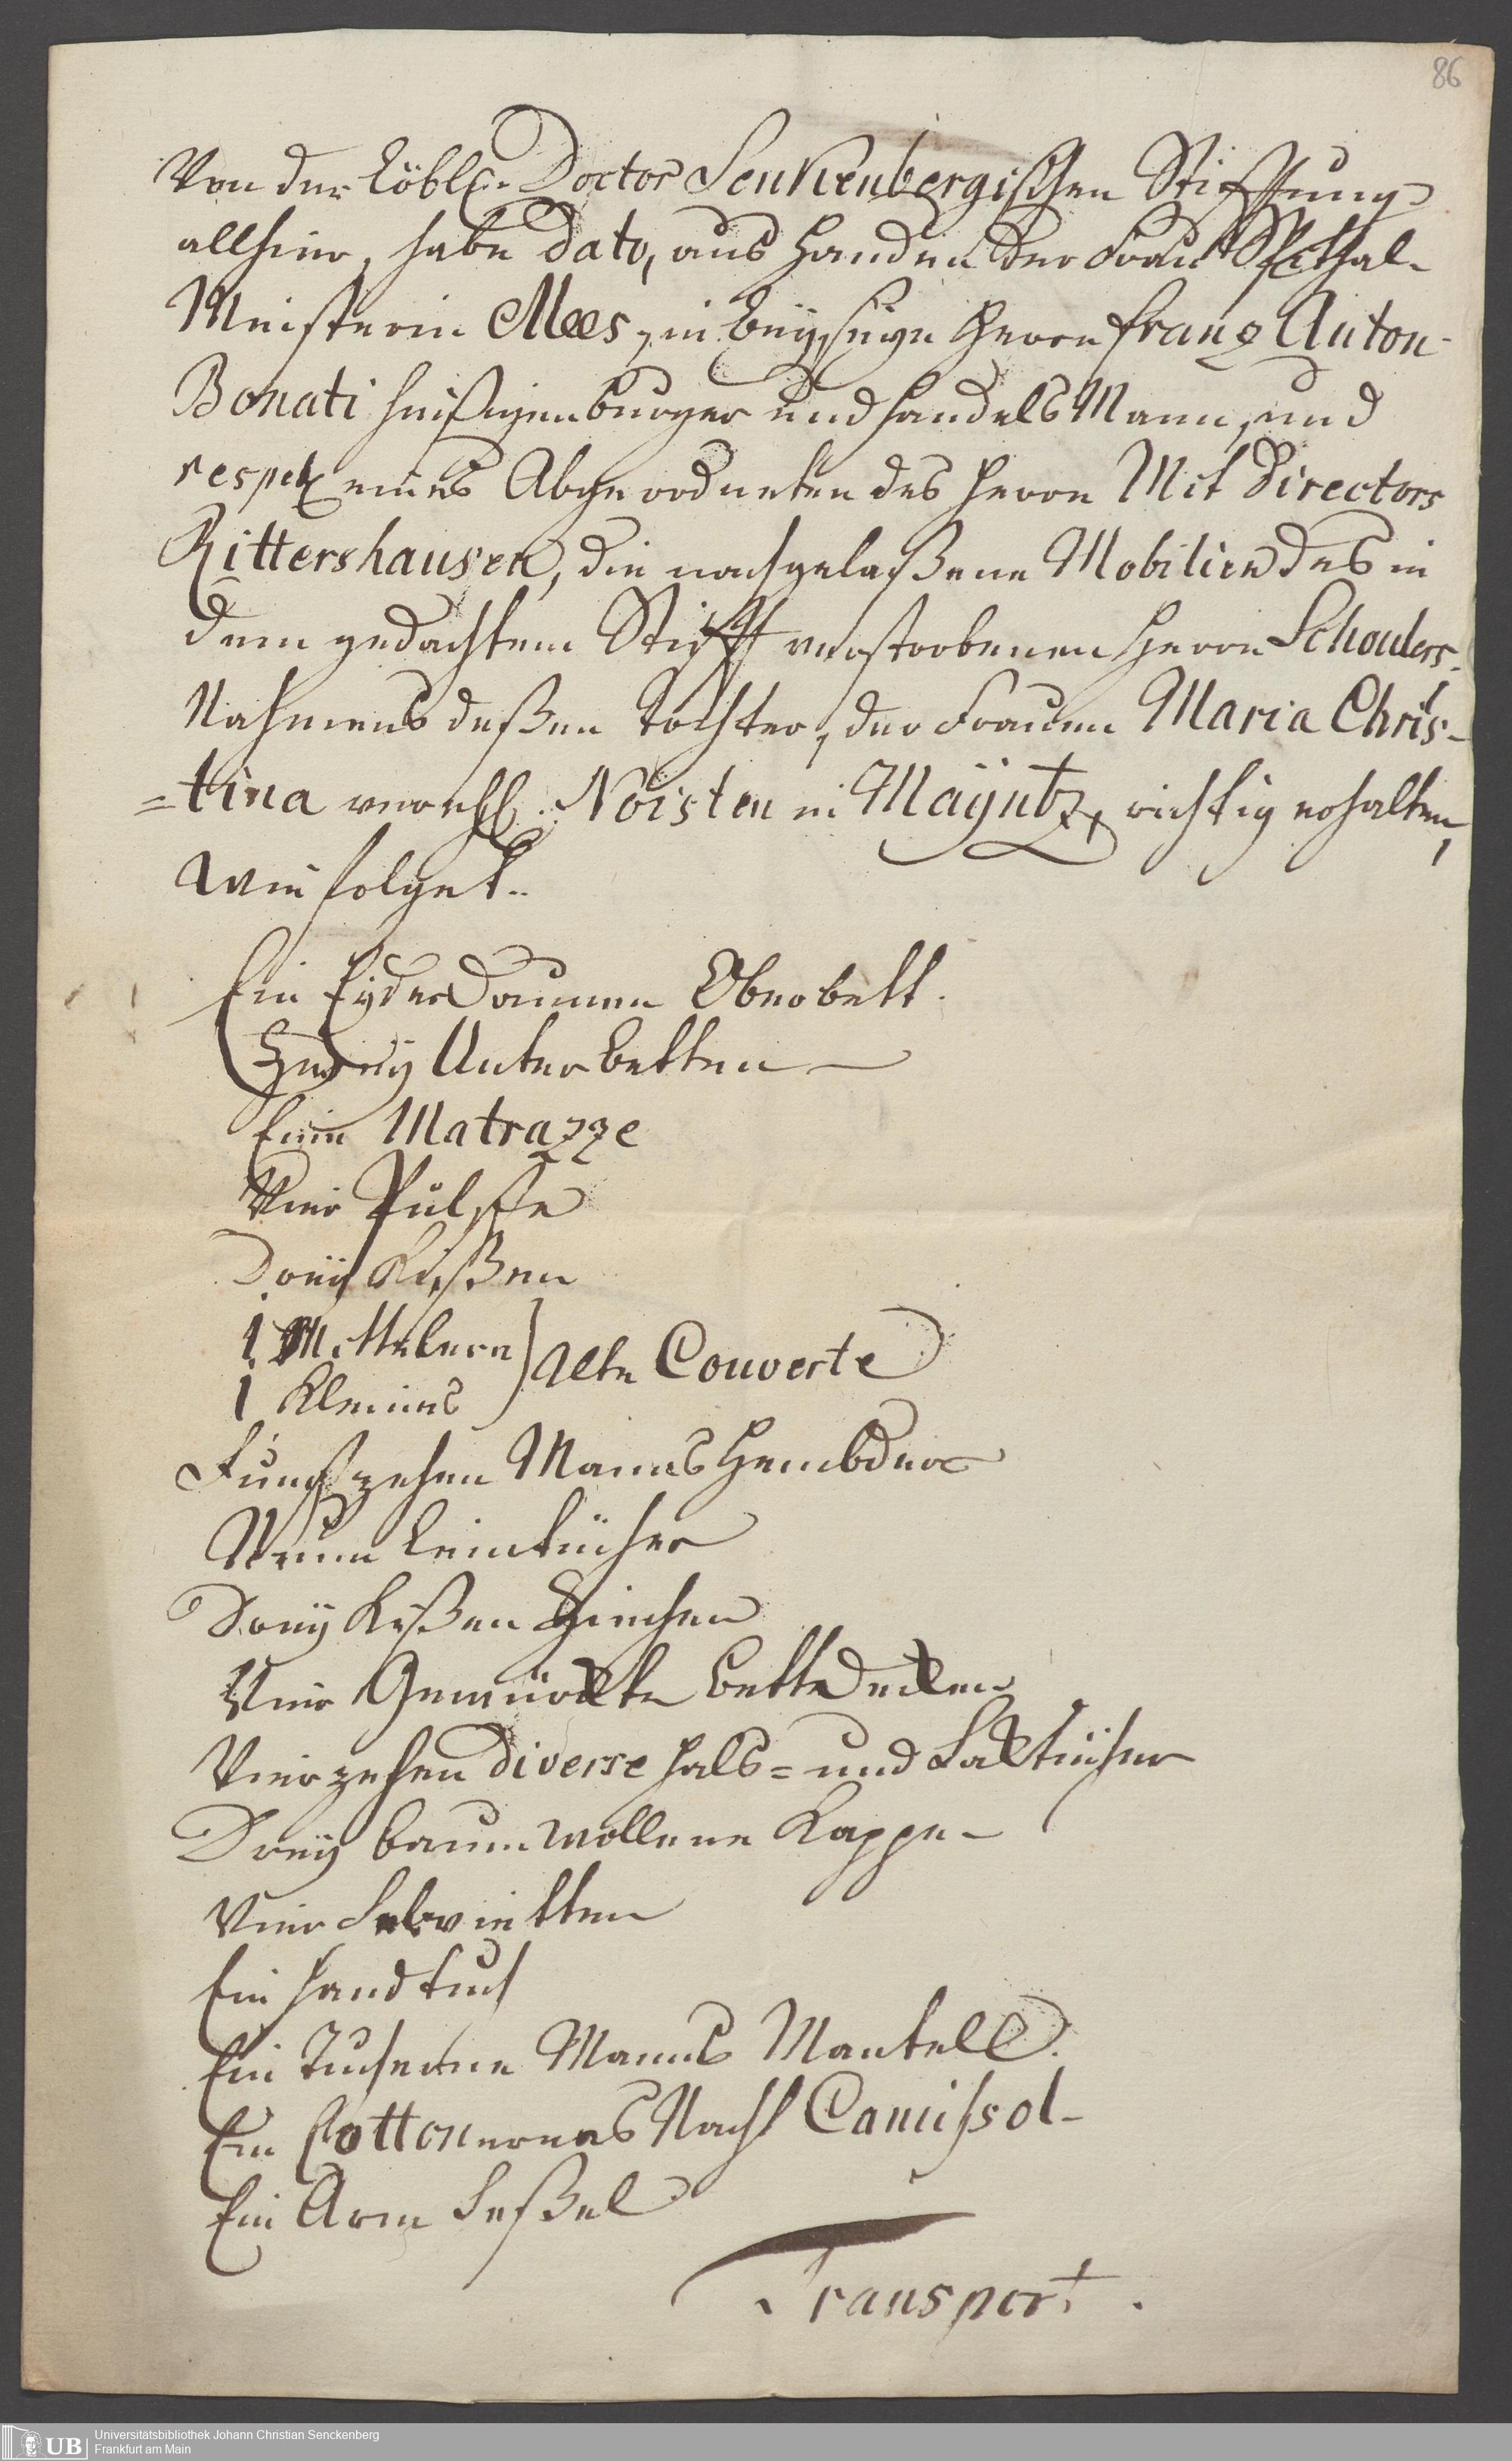 86
Von der Löbl. Doctor Senkenbergischen Stifftung
allhier, habe dato, aus Handen der Frau Spithal-
Meisterin Mees, in beyseyn Herrn Franz Anton
Bonati hießigen burger und handels Mann, und
respek eines Abgeordneten des Herrn Mit Directors
Rittershausen, die nachgelaßene Mobilien des in
dem gedachtem Stifft verstorbenen Herrn Schouders
Nahmens deßen Tochter, der Frauen Maria Chris-
=tina verehl. Noisten in Mayntz, richtig erhalten,
wie folget..
Ein Eyder Daumen Oberbett.
Zwey Unter betten
Eine Matrazze
Vier Pülffe
Drey Küßen
1 Mittlere } Alte Couverte
1 Kleines
Funffzehen Manns Hembder
Neun Leintücher
Drey Kißen Ziechen
Vier Gewürckte bett Decken
Vierzehen diverse Hals= und Sacktücher
Drey baumwollene Kappe
Vier Servietten
Ein Handtuch
Ein Tucherne Manns Mantell.
Ein Cottonernes Nacht Camisol
Ein Arm Seßel
Transport.
UB Universitätsbibliothek Johann Christian Senckenberg
Frankfurt am Main